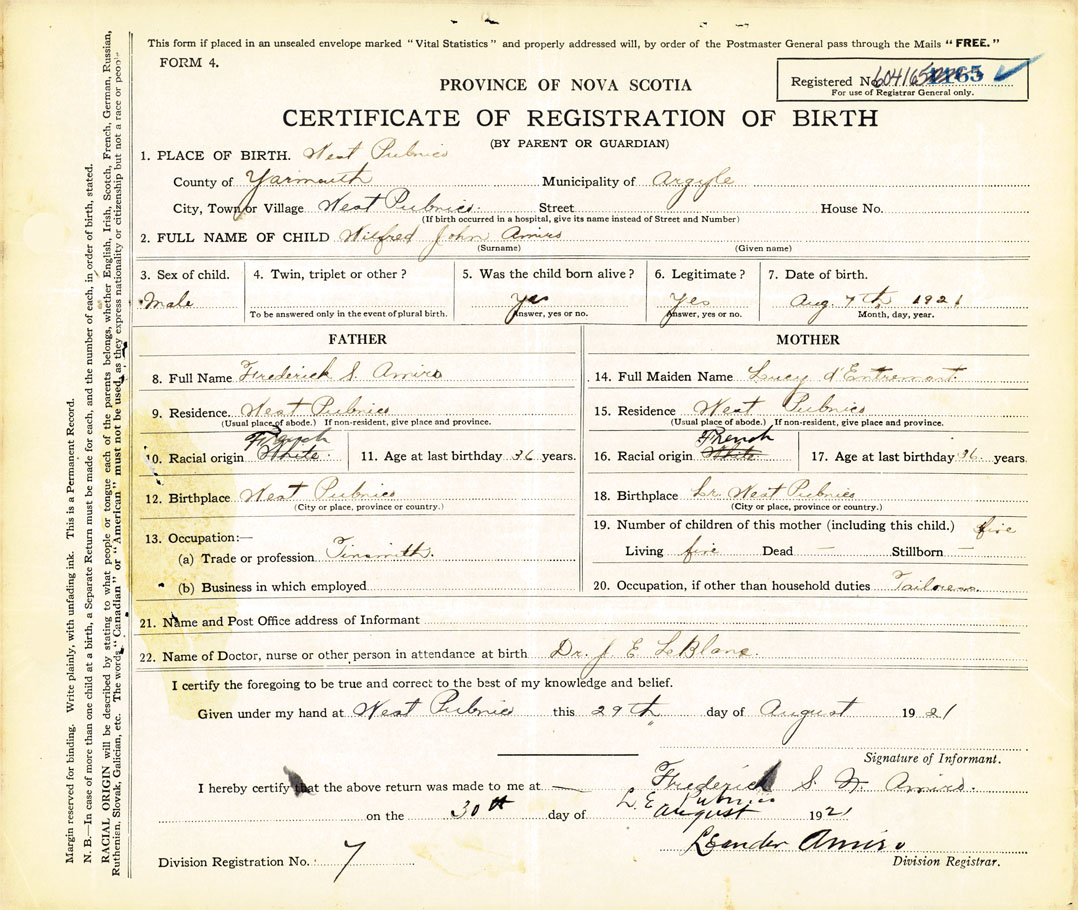 This form if placed in an unsealed envelope marked "Vital Statistics" and properly addressed will, by order of the Postmaster General pass through the Mails "FREE."
FORM 4.
Registered No. 604165
For use of Registrar General only.
PROVINCE OF NOVA SCOTIA
CERTIFICATE OF REGISTRATION OF BIRTH
(BY PARENT OR GUARDIAN)
1. PLACE OF BIRTH. West Pubnico
County of Yarmouth Municipality of Argyle
City, Town or Village West Pubnico. Street House No.
(If birth occurred in a hospital, give its name instead of Street and Number)
2. FULL NAME OF CHILD Wilfred John Amiro
(Surname) (Given name)
3. Sex of child. 4. Twin, triplet or other? 5. Was the child born alive? 6. Legitimate? 7. Date of birth.
Male Yes Yes Aug. 7th 1921
To be answered only in the event of plural birth. Answer, yes or no. Answer, yes or no. Month, day, year.
FATHER MOTHER
8. Full Name Frederick S. Amiro 14. Full Maiden Name Lucy d'Entremont.
9. Residence West Pubnico 15. Residence West Pubnico
(Usual place of abode.) If non-resident, give place and province. (Usual place of abode.) If non-resident, give place and province.
French French
10. Racial origin White. 11. Age at last birthday 36 years. 16. Racial origin White 17. Age at last birthday 36 years.
12. Birthplace West Pubnico 18. Birthplace Lr. West Pubnico
(City or place, province or country.) (City or place, province or country.)
13. Occupation:— 19. Number of children of this mother (including this child.) five
(a) Trade or profession Tinsmith. Living five Dead — Stillborn —
(b) Business in which employed 20. Occupation, if other than household duties Tailoress.
21. Name and Post Office address of Informant
22. Name of Doctor, nurse or other person in attendance at birth Dr. J. E LeBlanc.
I certify the foregoing to be true and correct to the best of my knowledge and belief.
Given under my hand at West Pubnico this 29th day of August 1921
Signature of Informant.
Frederick S. Amiro.
I hereby certify that the above return was made to me at — L. E. Pubnico
on the 30th day of August 1921
Leander Amiro
Division Registration No. 7 Division Registrar.
Margin reserved for binding. Write plainly, with unfading ink. This is a Permanent Record.
N. B.—In case of more than one child at a birth, a Separate Return must be made for each, and the number of each, in order of birth, stated.
RACIAL ORIGIN will be described by stating to what people or tongue each of the parents belongs, whether English, Irish, Scotch, French, German, Russian,
Ruthenien, Slovak, Galician, etc. The words "Canadian" or "American" must not be used, as they express nationality or citizenship but not a race or people.